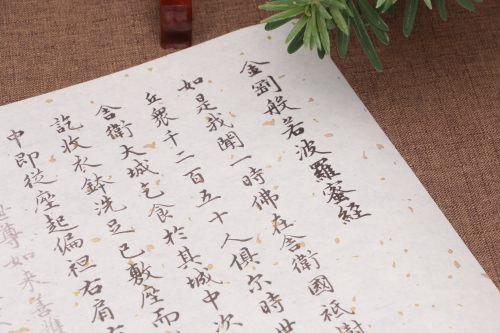 金剛般若波羅蜜經
如是我聞一時佛在舍衛國祇
丘眾千二百五十人俱尒時世
舍衛大城乞食於其城中次
訖收衣鉢洗足已敷座而
中即從座起偏袒右肩
世尊如来善